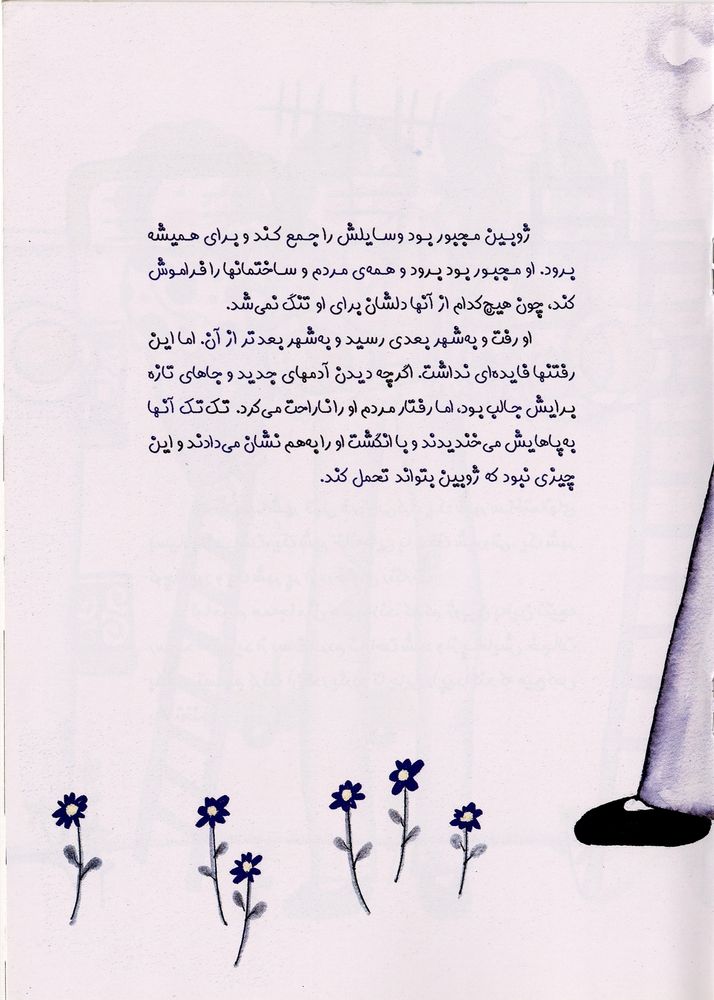 ژوبین مجبور بود وسایلش را جمع کند و برای همیشه
برود. او مجبور بود برود و همه‌ی مردم و ساختمانها را فراموش
کند، چون هیچ‌کدام از آنها دلشان برای او تنگ نمی‌شد.
او رفت و به‌شهر بعدی رسید و به‌شهر بعدتر از آن. اما این
رفتنها فایده‌ای نداشت. اگرچه دیدن آدمهای جدید و جاهای تازه
برایش جالب بود، اما رفتار مردم او را ناراحت می‌کرد. تک‌تک آنها
به‌پاهایش می‌خندیدند و با انگشت او را به‌هم نشان می‌دادند و این
چیزی نبود که ژوبین بتواند تحمل کند.